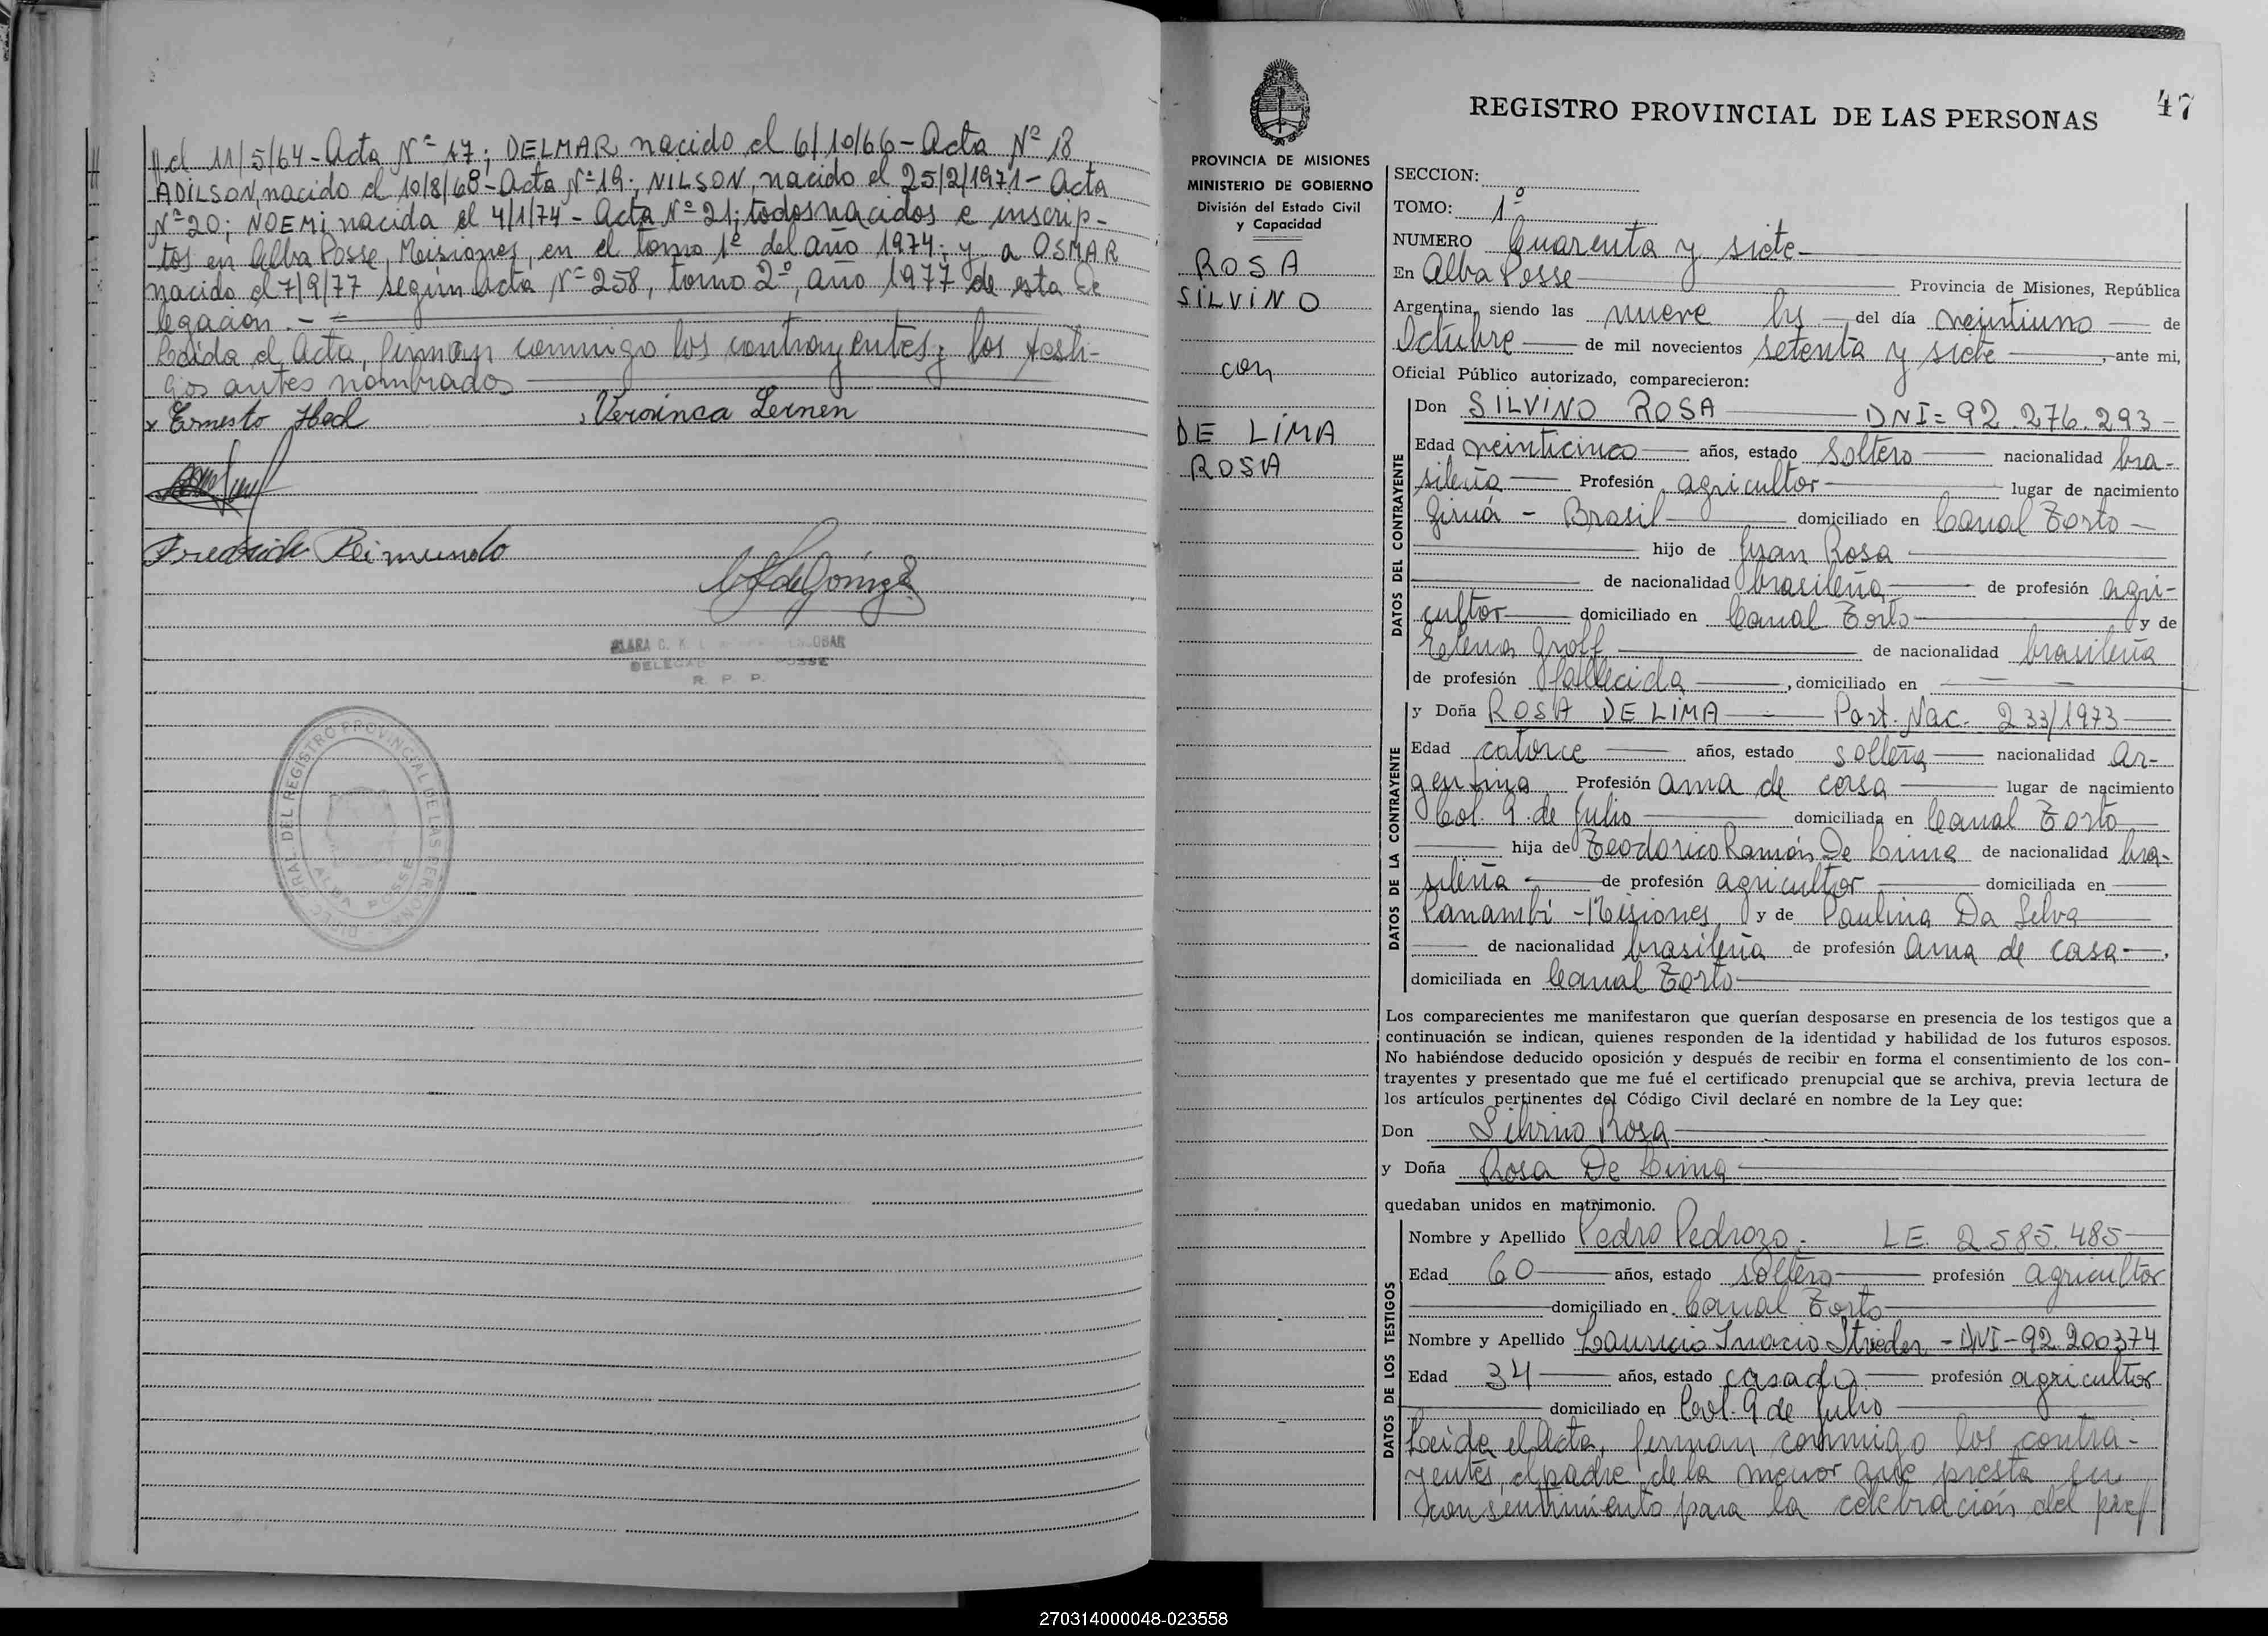 //el 11/5/64 - Acta Nº 17; DELMAR nacido el 6/10/66 - Acta Nº 18
ADILSON, nacido el 10/8/68 - Acta Nº 19; NILSON, nacido el 25/2/1971 - Acta
Nº 20; NOEMI nacida el 4/1/74 - Acta Nº 21; todos nacidos e inscrip-
tos en Alba Posse, Misiones, en el tomo 1º del año 1974; y a OSMAR
nacido el 7/9/77 según Acta Nº 258, tomo 2º, año 1977 de esta De
legación.-
Leída el Acta, firman conmigo los contrayentes y los testi-
gos antes nombrados
x Ernesto Hech
Veroinca Lernen
Friedrich Reimundo
CLARA C. K. ESCOBAR
DELEGAD POSSE
R. P. P.
DIREC. GRAL. DEL REGISTRO PROVINCIAL DE LAS PERSONAS
ALBA POSSE
47
REGISTRO PROVINCIAL DE LAS PERSONAS
PROVINCIA DE MISIONES
MINISTERIO DE GOBIERNO
División del Estado Civil
y Capacidad
ROSA
SILVINO
con
DE LIMA
ROSA
SECCION:
TOMO: 1º
NUMERO Cuarenta y siete
En Alba Posse Provincia de Misiones, República
Argentina, siendo las nueve hs del día veintiuno de
Octubre de mil novecientos setenta y siete, ante mi,
Oficial Público autorizado, comparecieron:
DATOS DEL CONTRAYENTE
Don SILVINO ROSA DNI = 92.276.293
Edad veinticinco años, estado soltero nacionalidad bra-
sileña Profesión agricultor lugar de nacimiento
Giruá - Brasil domiciliado en Canal Torto
hijo de Juan Rosa
de nacionalidad brasileña de profesión agri-
cultor domiciliado en Canal Torto y de
Elena Groff de nacionalidad brasileña
de profesión fallecida, domiciliado en
DATOS DE LA CONTRAYENTE
y Doña ROSA DE LIMA Part. Nac. 233/1973
Edad catorce años, estado soltera nacionalidad ar-
gentina Profesión ama de casa lugar de nacimiento
Col. 9 de Julio domiciliada en Canal Torto
hija de Teodorico Ramón De Lima de nacionalidad bra-
sileña de profesión agricultor domiciliada en
Panambí - Misiones y de Paulina Da Silva
de nacionalidad brasileña de profesión ama de casa,
domiciliada en Canal Torto
Los comparecientes me manifestaron que querían desposarse en presencia de los testigos que a
continuación se indican, quienes responden de la identidad y habilidad de los futuros esposos.
No habiéndose deducido oposición y después de recibir en forma el consentimiento de los con-
trayentes y presentado que me fué el certificado prenupcial que se archiva, previa lectura de
los artículos pertinentes del Código Civil declaré en nombre de la Ley que:
Don Silvino Rosa
y Doña Rosa De Lima
quedaban unidos en matrimonio.
DATOS DE LOS TESTIGOS
Nombre y Apellido Pedro Pedrozo. LE. 2.585.485
Edad 60 años, estado soltero profesión agricultor
domiciliado en Canal Torto
Nombre y Apellido Lauricio Inacio Strieder - DNI - 92.200374
Edad 34 años, estado casado profesión agricultor
domiciliado en Col. 9 de Julio
Leída el Acta, firman conmigo los contra-
yentes, el padre de la menor que presta su
consentimiento para la celebración del pre//
270314000048-023558